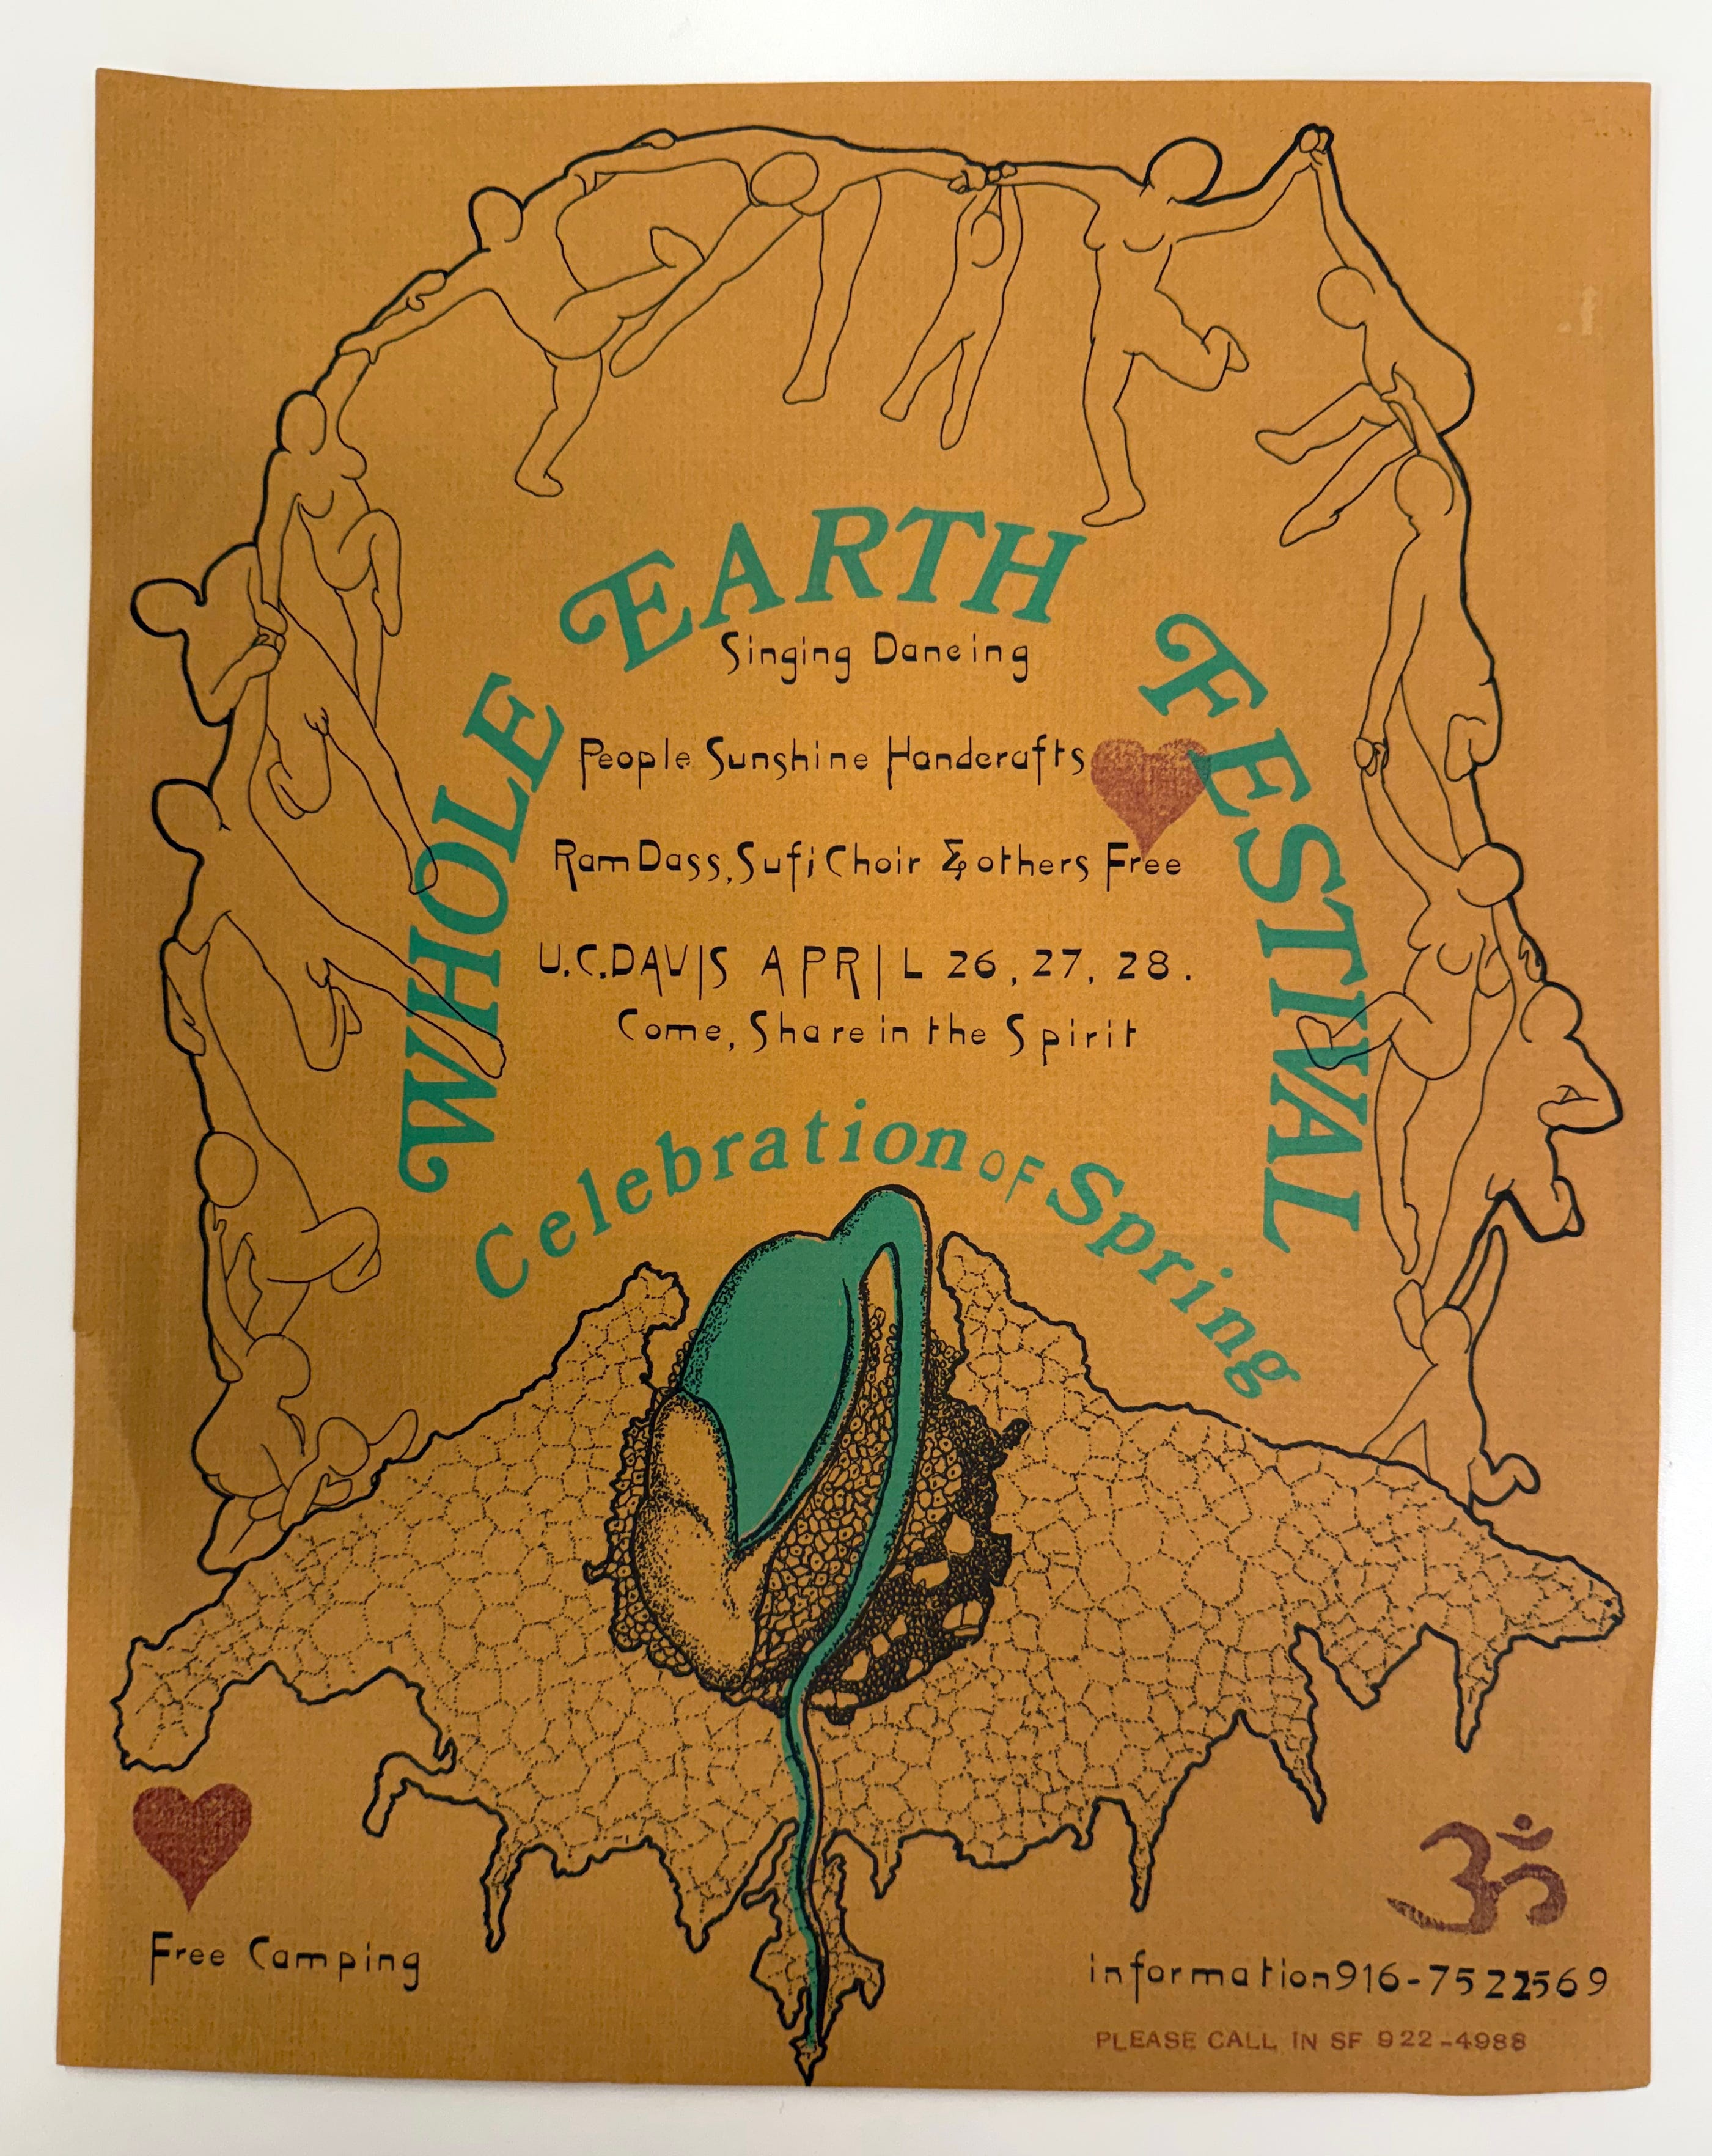 WHOLE EARTH FESTIVAL
Singing Dancing
People Sunshine Handcrafts
Ram Dass, Sufi Choir & others Free
U.C. DAVIS APRIL 26, 27, 28.
Come, Share in the Spirit
Celebration OF Spring
ॐ
Free Camping
information 916-752 2569
PLEASE CALL IN SF 922-4988